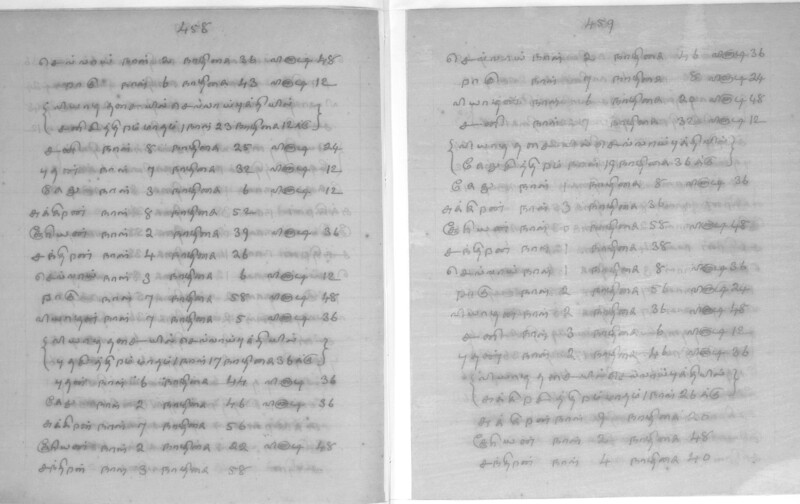 458
செவ்வாய் நாள் 2 நாழிகை 36 வினாடி 48
ராகு நாள் 6 நாழிகை 43 வினாடி 12
வியாழ தசையில் செவ்வாய்புத்தியில்
சனி சித்திரம் மாதம் 1 நாள் 23 நாழிகை 12
சனி நாள் 8 நாழிகை 25 வினாடி 24
புதன் நாள் 7 நாழிகை 32 வினாடி 12
கேது நாள் 3 நாழிகை 6 வினாடி 12
சுக்கிரன் நாள் 8 நாழிகை 52
சூரியன் நாள் 2 நாழிகை 39 வினாடி 36
சந்திரன் நாள் 4 நாழிகை 26
செவ்வாய் நாள் 3 நாழிகை 6 வினாடி 12
ராகு நாள் 7 நாழிகை 58 வினாடி 48
வியாழன் நாள் 7 நாழிகை 5 வினாடி 36
வியாழ தசையில் செவ்வாய்புத்தியில்
மாதம் 1 நாள் 17 நாழிகை 36
புதன் நாள் 6 நாழிகை 44 வினாடி 36
கேது நாள் 2 நாழிகை 46 வினாடி 36
சுக்கிரன் நாள் 7 நாழிகை 56
சூரியன் நாள் 2 நாழிகை 22 வினாடி 48
சந்திரன் நாள் 3 நாழிகை 58
459
செவ்வாய் நாள் 2 நாழிகை 46 வினாடி 36
ராகு நாள் 7 நாழிகை 8 வினாடி 24
வியாழன் நாள் 6 நாழிகை 20 வினாடி 48
சனி நாள் 7 நாழிகை 32 வினாடி 12
வியாழ தசையில் செவ்வாய்புத்தியில்
நாள் 19 நாழிகை 36
கேது நாள் 1 நாழிகை 8 வினாடி 36
சுக்கிரன் நாள் 3 நாழிகை 16
சூரியன் நாள் 0 நாழிகை 58 வினாடி 48
சந்திரன் நாள் 1 நாழிகை 38
செவ்வாய் நாள் 1 நாழிகை 8 வினாடி 36
ராகு நாள் 2 நாழிகை 56 வினாடி 24
வியாழன் நாள் 2 நாழிகை 36 வினாடி 48
சனி நாள் 3 நாழிகை 6 வினாடி 12
புதன் நாள் 2 நாழிகை 46 வினாடி 36
வியாழ தசையில் செவ்வாய்புத்தியில்
மாதம் 1 நாள் 26
சுக்கிரன் நாள் 9 நாழிகை 20
சூரியன் நாள் 2 நாழிகை 48
சந்திரன் நாள் 4 நாழிகை 40